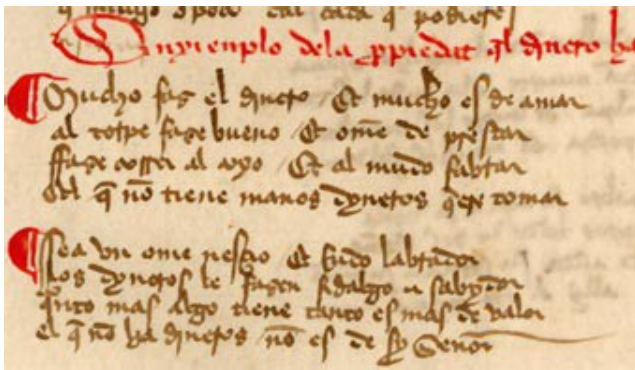 Enxienplo dela ppiedat ql dinero ha
Mucho faz el dinero Et mucho es de amar
al torpe faze bueno Et ome de prestar
ffaze correr al coxo Et al mudo fablar
El q no tiene manos dyneros quiere tomar
Sea vn ome nesçio Et rudo labrador
los dyneros le fazen fidalgo e sabydor
quanto mas algo tiene tanto es mas de valor
el q no ha dineros no es de sy Señor